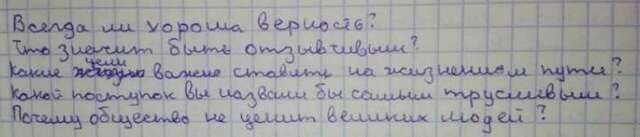 Всегда ли хороша верность?
Что значит быть отзывчивым?
Какие цели важно ставить на жизненном пути?
Какой поступок вы назвали бы самым трусливым?
Почему общество не ценит великих людей?